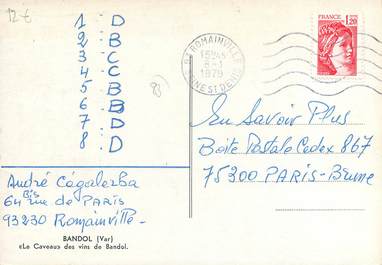 12 €
1 D
2 B
3 C
4 C
5 B
6 B
7 D
8 D
93 ROMAINVILLE
1979
SEINE ST DENIS
FRANCE
1,20
En Savoir Plus
Boite Postale Cedex 867
75300 PARIS-Brune
André Cégalerba
64 Bis rue de PARIS
93230 Romainville -
BANDOL (Var)
«Le Caveau» des vins de Bandol.